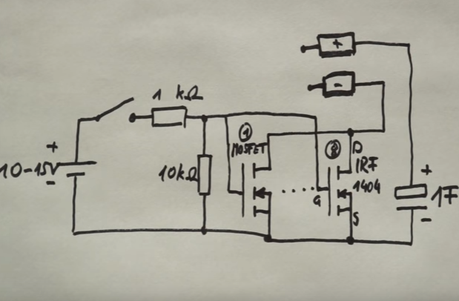 +
-
1 kΩ
+
10-15V
-
10kΩ
1
MOSFET
2
D
IRF
1404
G
S
+
1F
-